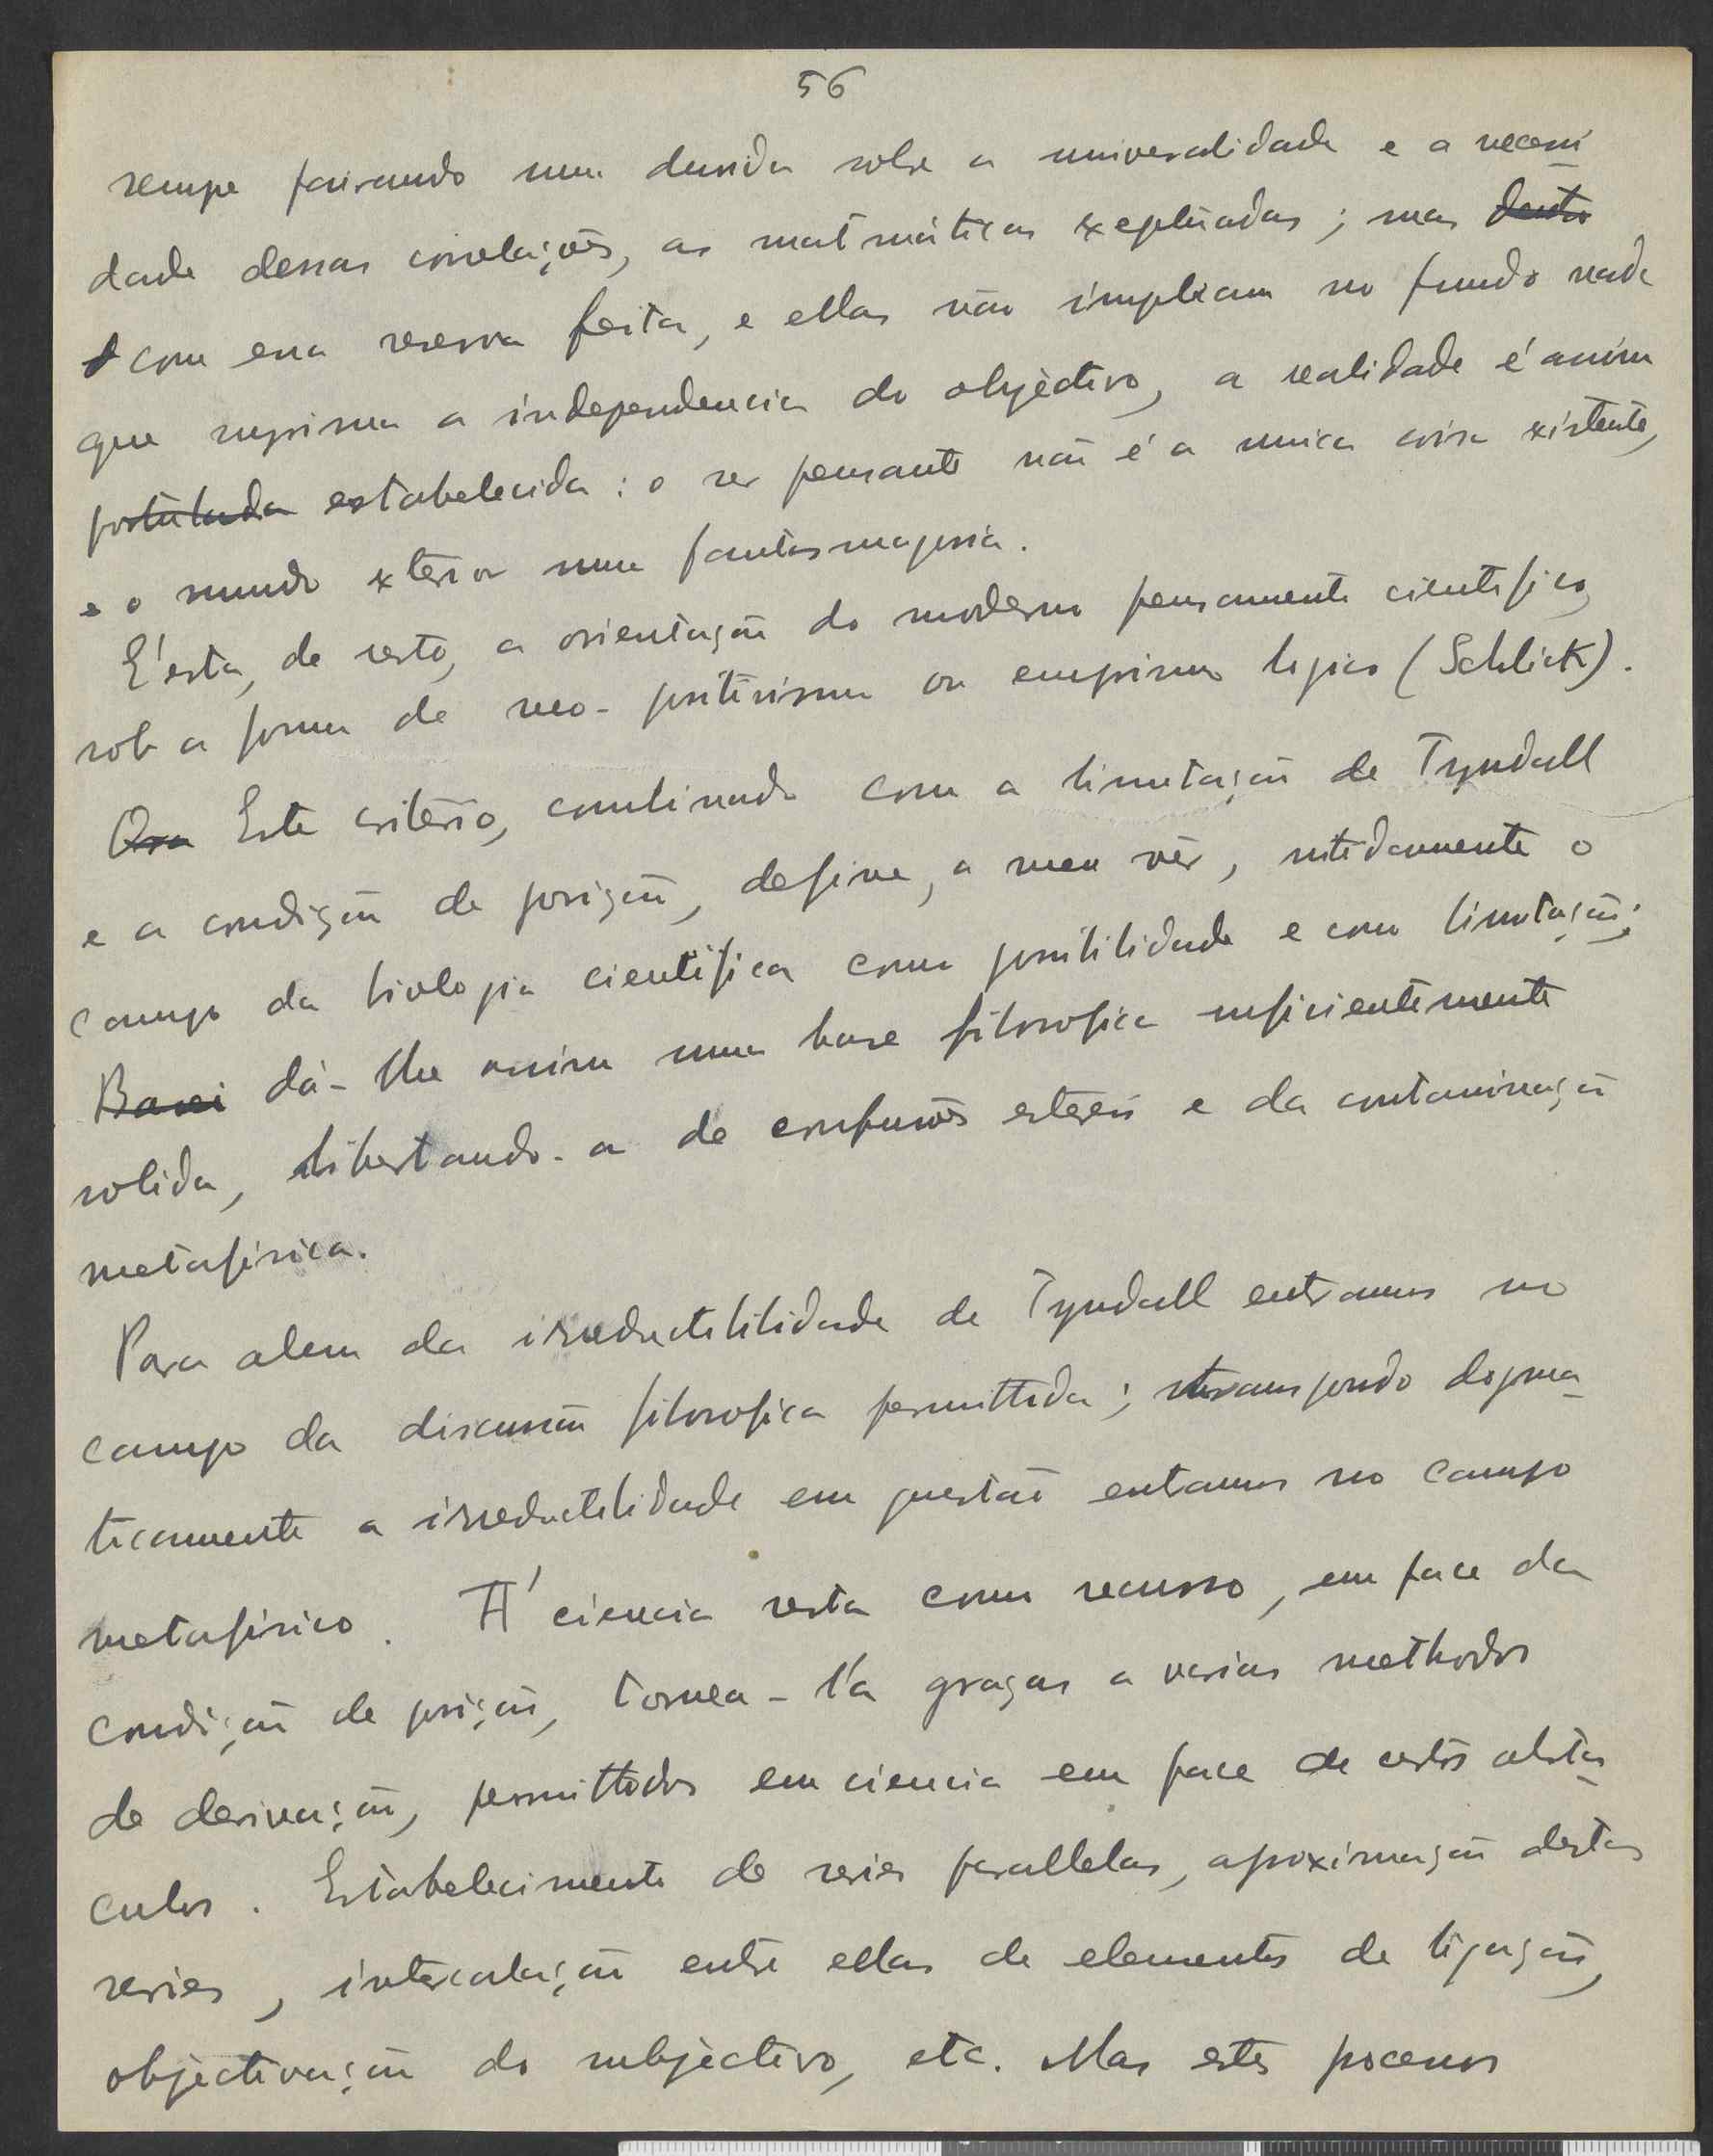 56
sempre pairando uma duvida sobre a universalidade e a necessi
dade dessas correlações, as matematicas exceptuadas; mas dentro
com essa reserva feita, e ellas não implicam no fundo nada
que suprima a independencia do objectivo, a realidade é assim
postulada estabelecida: o ser pensante não é a unica coisa existente,
e o mundo exterior uma fantasmagoria.
E' esta, de resto, a orientação do moderno pensamento cientifico,
sob a forma de neo-positivismo ou empirismo logico (Schlick).
Ora Este critério, combinado com a limitação de Tyndall
e a condição de posição, define, a meu vêr, nitidamente o
campo da biologia cientifica como possibilidade e como limitação;
dá-lhe assim uma base filosofica suficientemente
solida, libertando-a de confusões estereis e da contaminação
metafisica.
Para alem da irreductibilidade de Tyndall entramos no
campo da discussão filosofica permittida; transpondo dogma-
ticamente a irreductibilidade em questão entramos no campo
metafisico. A' ciencia resta como recurso, em face da
condição de posição, tornea-l'a graças a varios methodos
de derivação, permittidos em ciencia em face de certos obsta-
culos. Estabelecimento de series parallelas, aproximação destas
series, intercalação entre ellas de elementos de ligação,
objectivação do subjectivo, etc. Mas estes processos